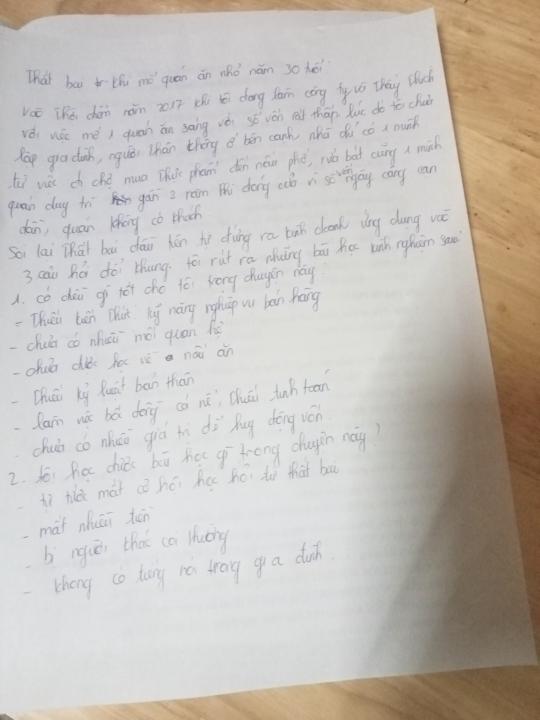 Thất bại khi mở quán ăn nhỏ năm 30 tuổi
vào thời điểm năm 2017 khi tôi đang làm công ty vì thấy thích
với việc mở 1 quán ăn sáng với số vốn rất thấp lúc đó tôi chưa
lập gia đình, người thân không ở bên cạnh nhà chỉ có 1 mình
từ việc đi chợ mua thực phẩm đến nấu phở, rửa bát cũng 1 mình
quán duy trì gần 3 năm thì đóng cửa vì số vốn ngày càng cạn
dần, quán không có khách
Soi lại thất bại đầu tiên tự đứng ra kinh doanh ứng dụng vào
3 câu hỏi đổi khung. tôi rút ra những bài học kinh nghiệm sau:
1. có điều gì tốt cho tôi trong chuyện này:
- Thiếu kiến thức kỹ năng nghiệp vụ bán hàng
- chưa có nhiều mối quan hệ
- chưa được học về nấu ăn
- Thiếu kỷ luật bản thân
- làm việc bốc đồng cả nể, thiếu tính toán
- chưa có nhiều giá trị để huy động vốn.
2. tôi học được bài học gì trong chuyện này?
- tự tước mất cơ hội học hỏi từ thất bại
- mất nhiều tiền
- bị người khác coi thường
- không có tiếng nói trong gia đình.